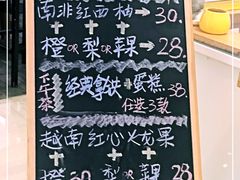 南非红西柚 → 30.
+ + +
橙 OR 梨 OR 苹果 → 28.
下午茶 经典拿铁 + 蛋糕 38.
任选3款
越南红心火龙果
+ + +
橙 OR 梨 OR 苹果 28